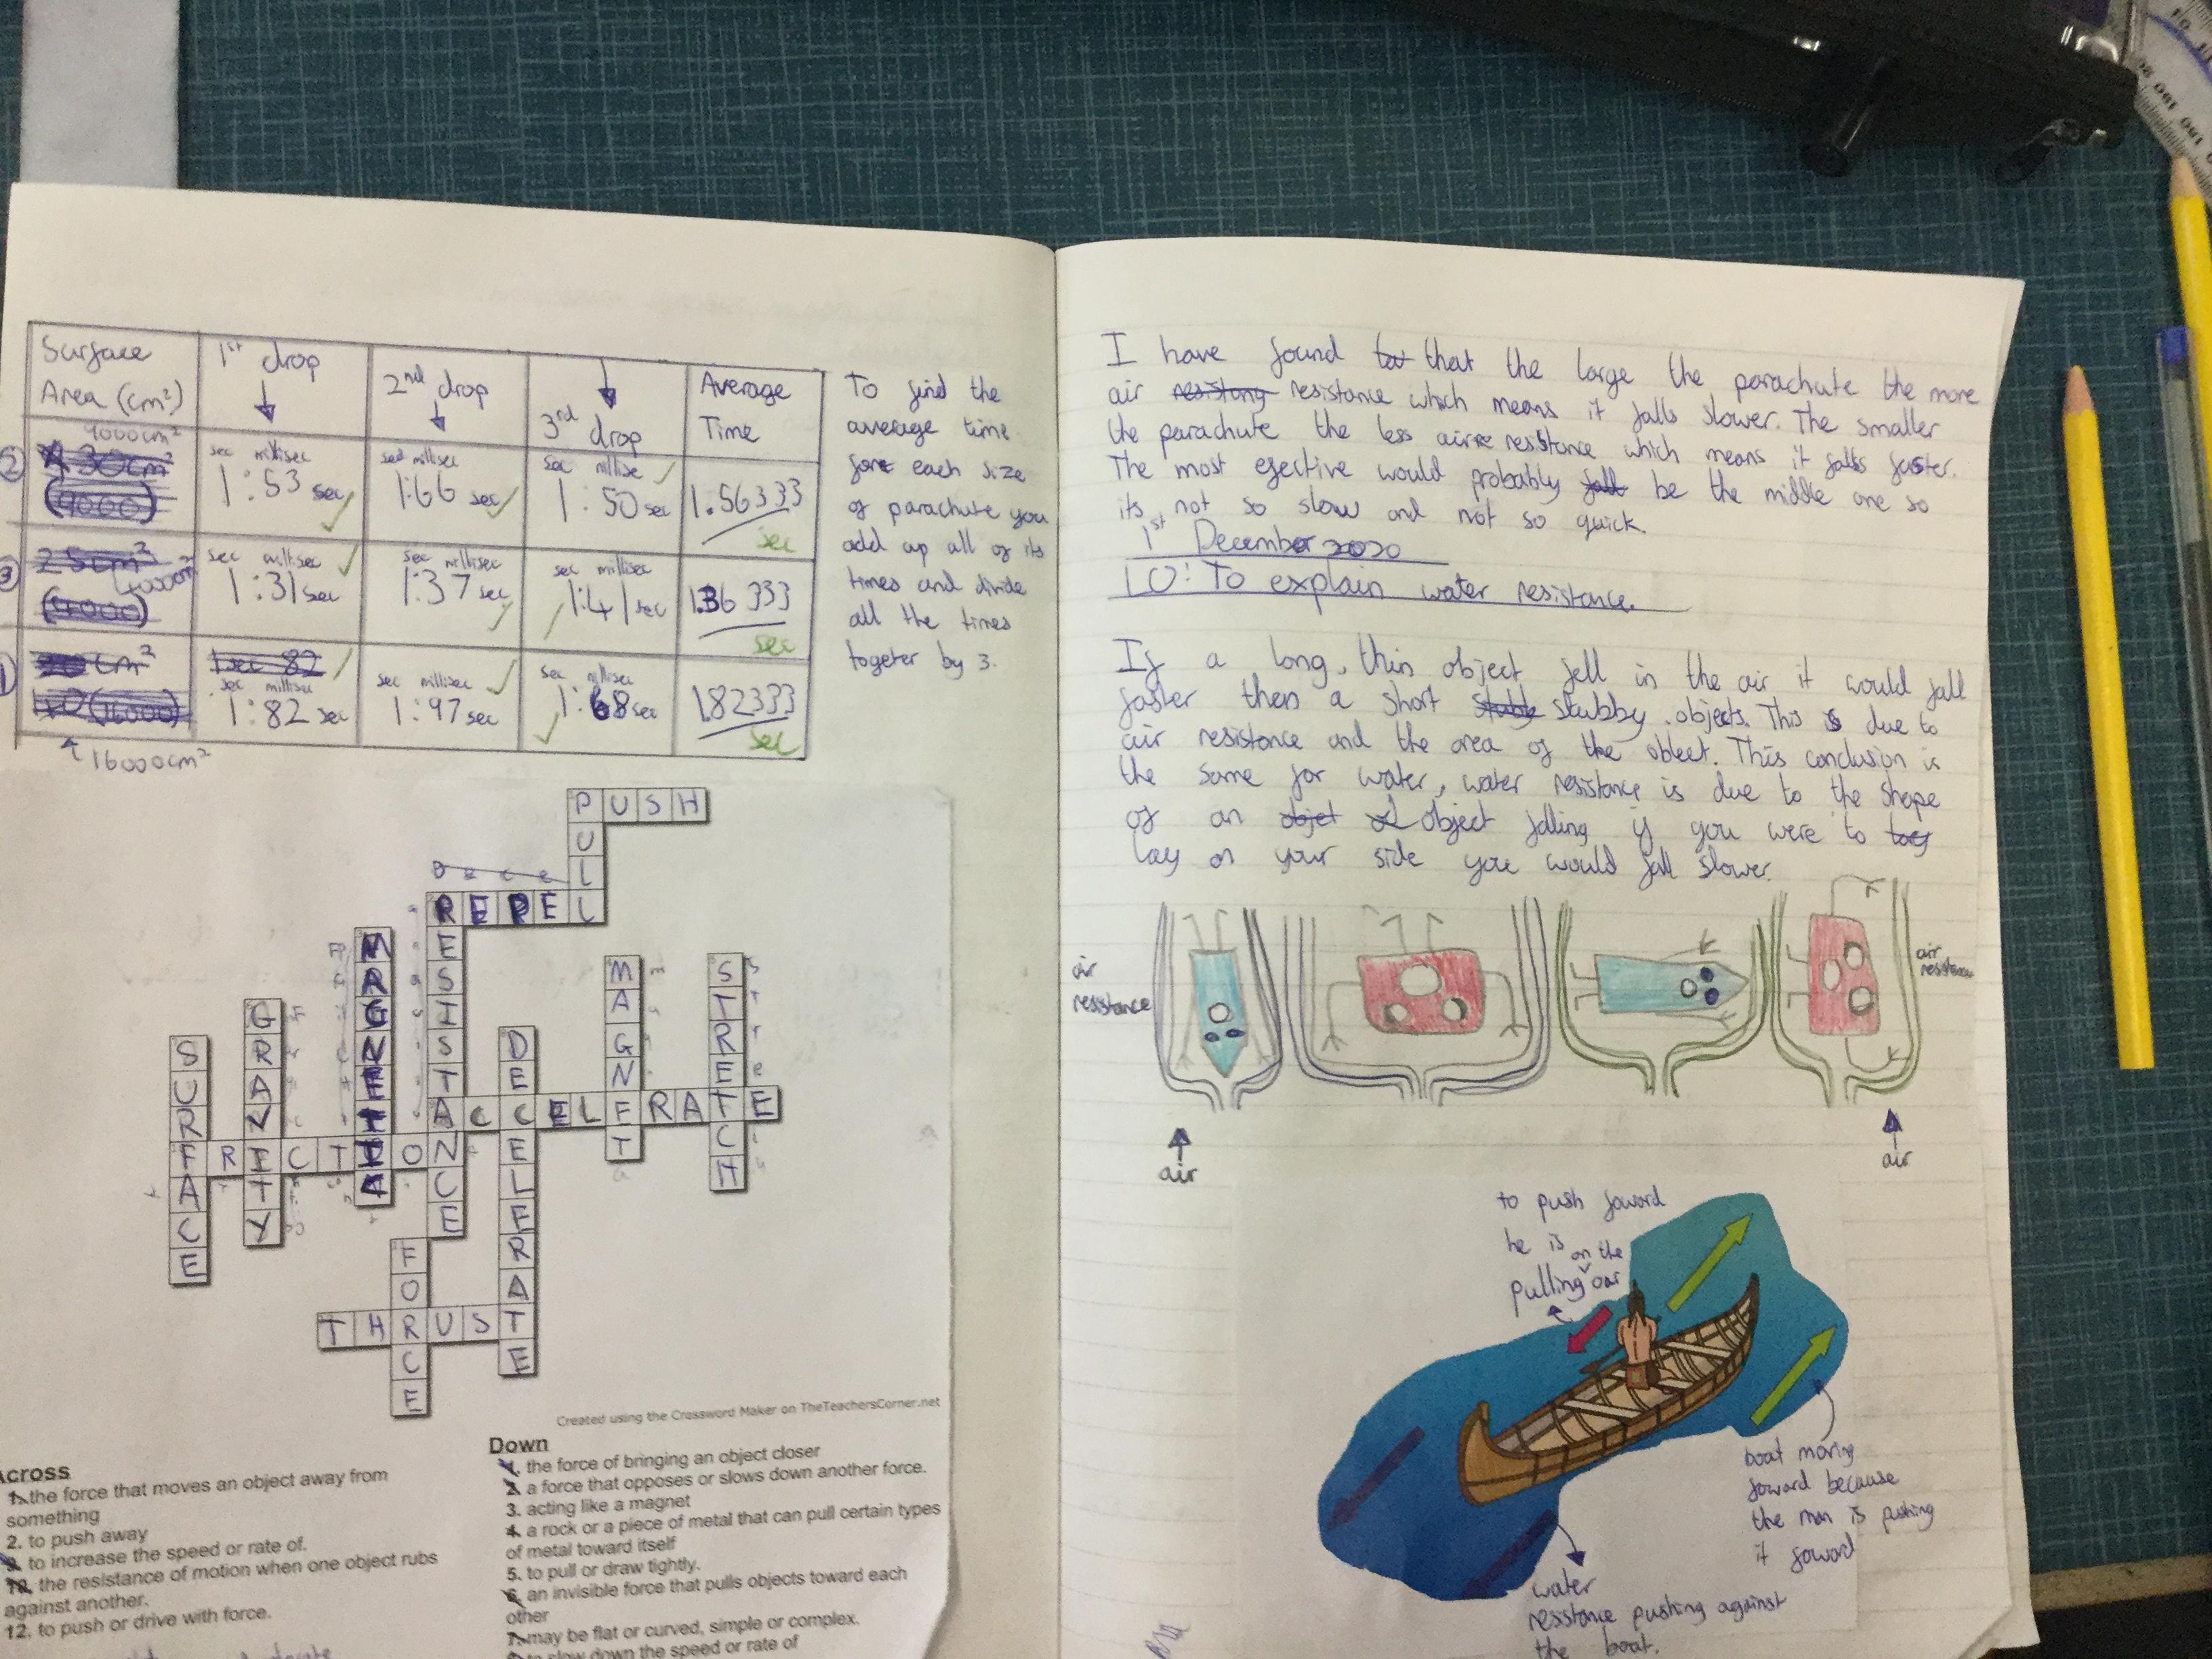 Surface
Area (cm²)
1st drop
2nd drop
3rd drop
Average
Time
9000cm²
② 30cm²
(9000)
sec millisec
1:53 sec
sec millisec
1:66 sec
sec millise
1:50 sec
1.56333
sec
③ 25cm²
4000cm²
(4000)
sec millisec
1:31 sec
sec millisec
1:37 sec
sec millisec
1:41 sec
1.36333
sec
cm²
(16000)
1 sec 82
sec millisec
1:82 sec
sec millisec
1:97 sec
sec millisec
1:68 sec
1.82333
sec
16000cm²
To find the
average time
for each size
of parachute you
add up all of its
times and divide
all the times
togeter by 3.
PUSH
PULL
REPEL
RESISTANCE
MAGNETIC
MAGNET
STRETCH
GRAVITY
SURFACE
DECELERATE
ACCELERATE
FRICTION
FORCE
THRUST
Created using the Crossword Maker on TheTeachersCorner.net
Across
1. the force that moves an object away from
something
2. to push away
9. to increase the speed or rate of.
10. the resistance of motion when one object rubs
against another.
12. to push or drive with force.
Down
1. the force of bringing an object closer
2. a force that opposes or slows down another force.
3. acting like a magnet
4. a rock or a piece of metal that can pull certain types
of metal toward itself
5. to pull or draw tightly.
6. an invisible force that pulls objects toward each
other
7. may be flat or curved, simple or complex.
to slow down the speed or rate of
I have found that the large the parachute the more
air resistong resistance which means it falls slower. The smaller
the parachute the less air resistance which means it falls faster.
The most efective would probably fall be the middle one so
its not so slow and not so quick.
1st December 2020
LO: To explain water resistance.
If a long, thin object fell in the air it would fall
faster then a short stubby objects. This is due to
air resistance and the area of the object. This conclusion is
the same for water, water resistance is due to the shape
of an objet object falling if you were to
lay on your side you would fall slower.
air
resistance
air
resistance
air
air
to push foward
he is on the
pulling oar
boat moving
foward because
the man is pushing
it foward
water
resistance pushing against
the boat.